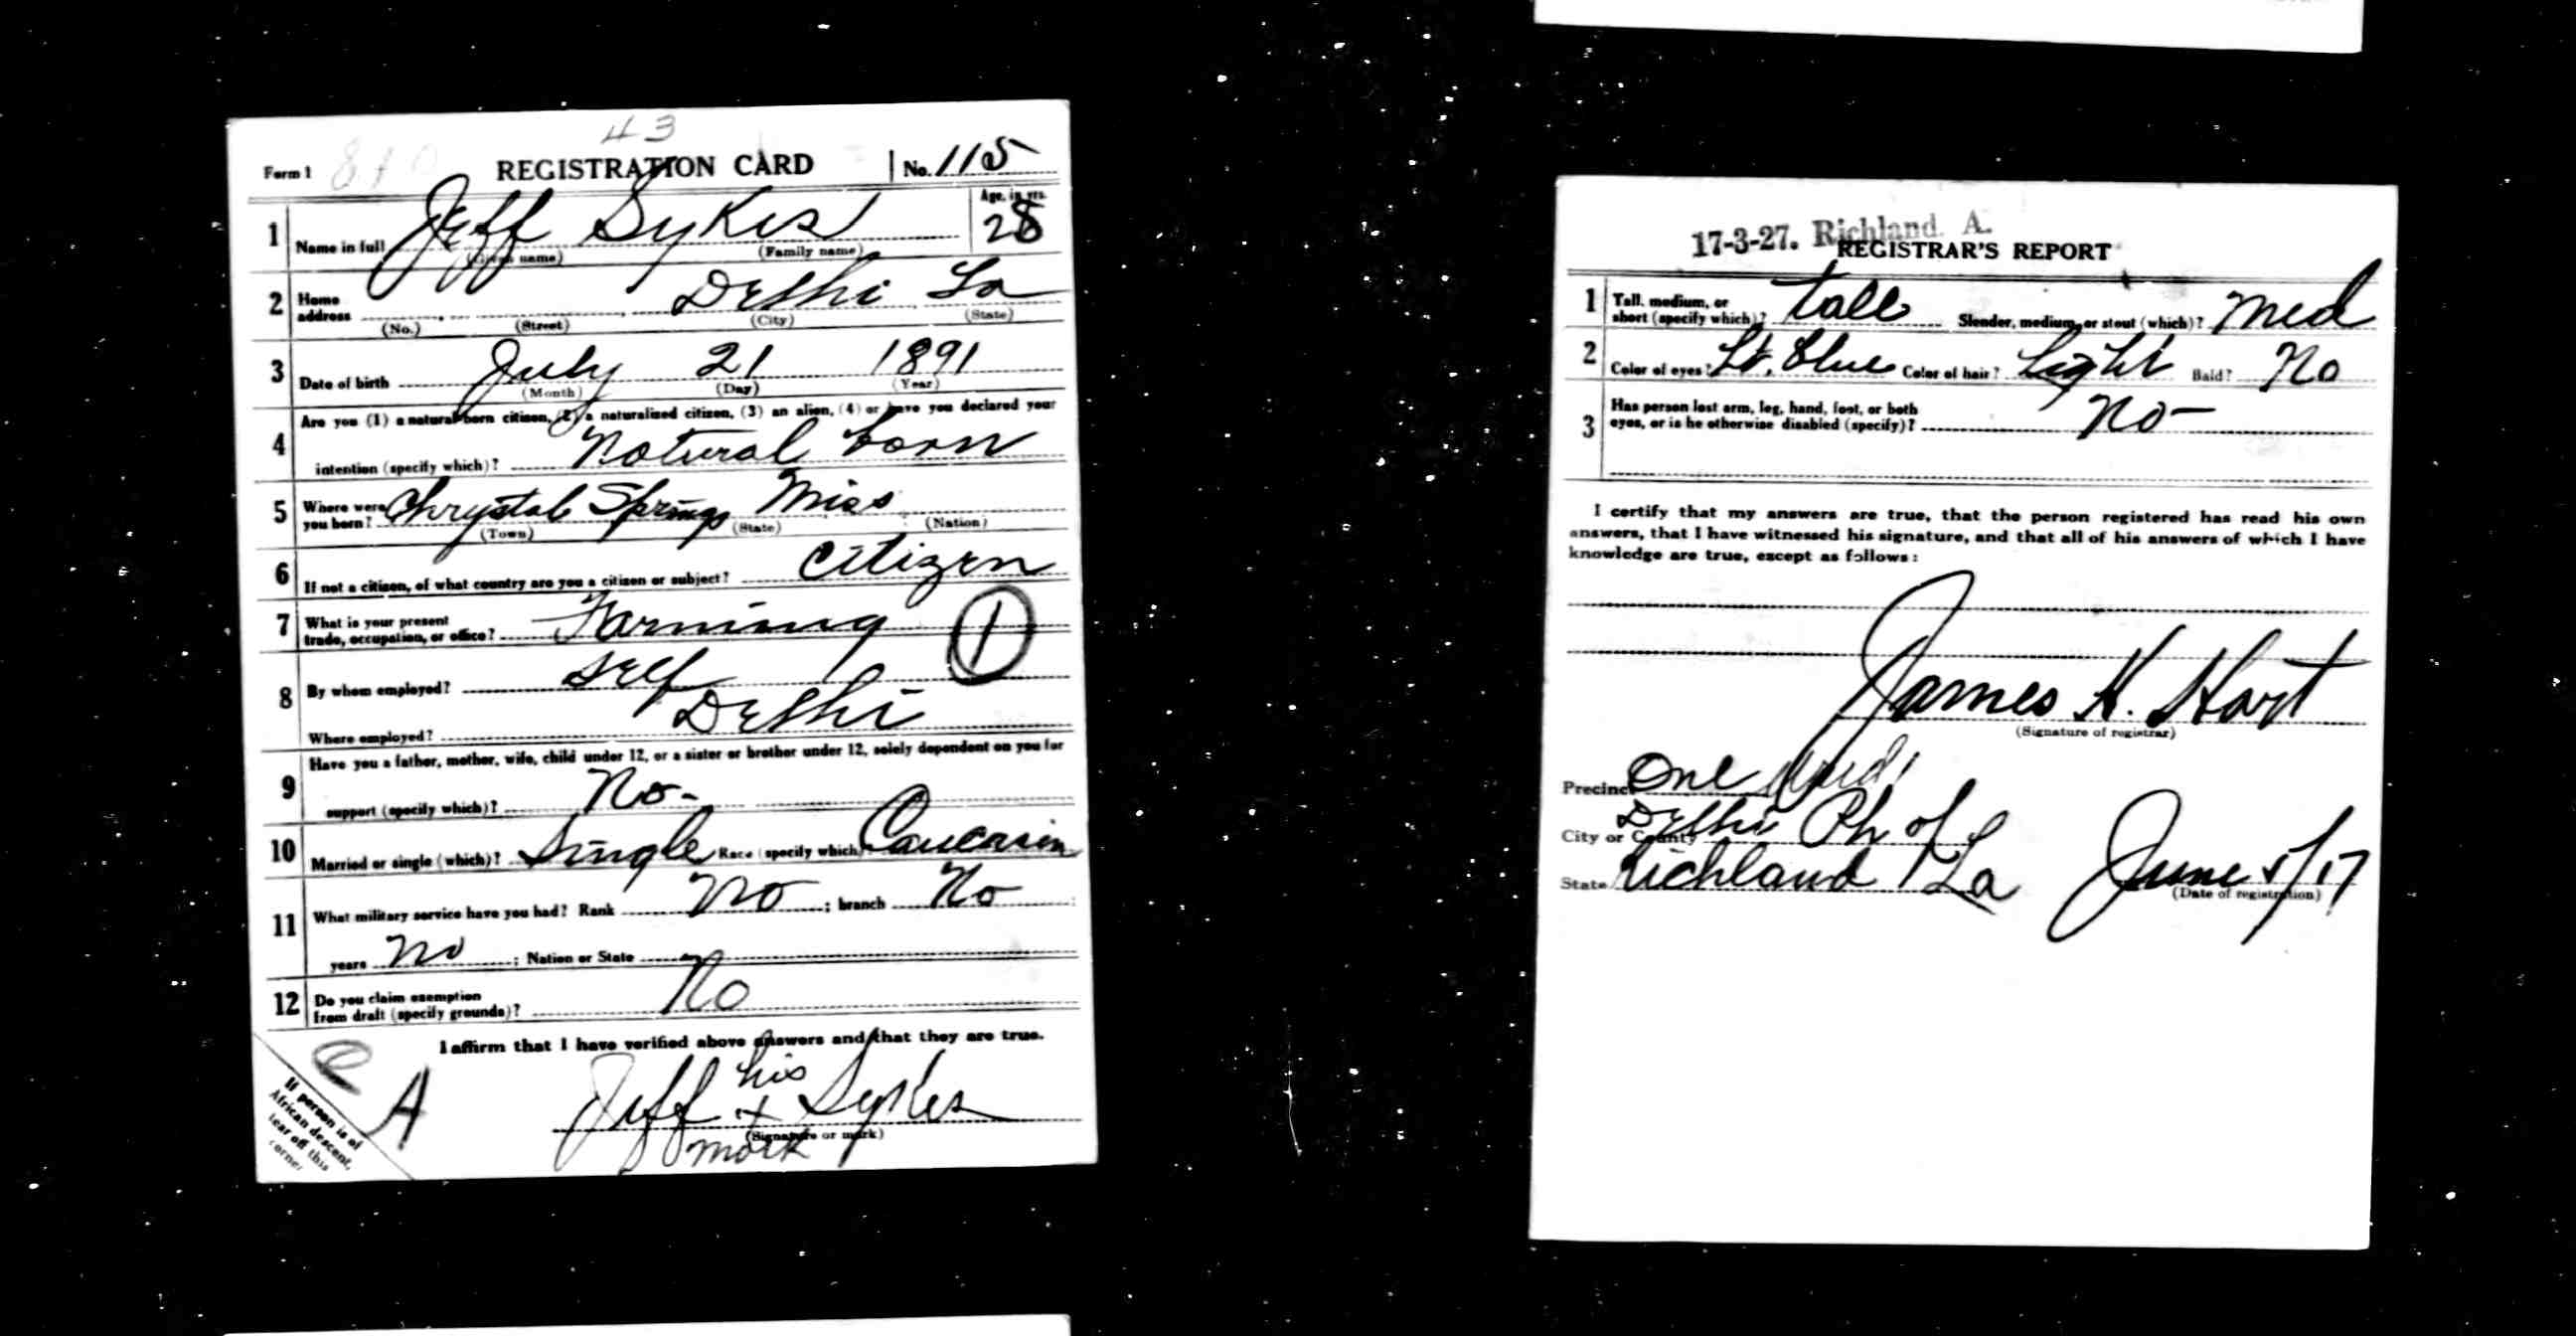 43
Form 1 810 REGISTRATION CARD No. 115
1 Name in full Jeff Sykes Age, in yrs. 28
(Given name) (Family name)
2 Home address Delhi La
(No.) (Street) (City) (State)
3 Date of birth July 21 1891
(Month) (Day) (Year)
4 Are you (1) a natural born citizen, (2) a naturalized citizen, (3) an alien, (4) or have you declared your
intention (specify which)? Natural born
5 Where were you born? Chrystal Springs Miss
(Town) (State) (Nation)
6 If not a citizen, of what country are you a citizen or subject? Citizen
7 What is your present trade, occupation, or office? Farming 1
8 By whom employed? Self
Where employed? Delhi
9 Have you a father, mother, wife, child under 12, or a sister or brother under 12, solely dependent on you for
support (specify which)? No-
10 Married or single (which)? Single Race (specify which)? Caucasin
11 What military service have you had? Rank No ; branch No
years No ; Nation or State
12 Do you claim exemption from draft (specify grounds)? No
I affirm that I have verified above answers and that they are true.
his
Jeff + Sykes
(Signature or mark)
mark
A
If person is of
African descent,
tear off this
corner
17-3-27. Richland A.
REGISTRAR'S REPORT
1 Tall, medium, or short (specify which)? tall Slender, medium, or stout (which)? Med
2 Color of eyes? Lt. Blue Color of hair? Light Bald? No
3 Has person lost arm, leg, hand, foot, or both
eyes, or is he otherwise disabled (specify)? No-
I certify that my answers are true, that the person registered has read his own
answers, that I have witnessed his signature, and that all of his answers of which I have
knowledge are true, except as follows:
James H. Hart
(Signature of registrar)
Precinct One
City or County Delhi Ph of
State Richland La June 5/17
(Date of registration)